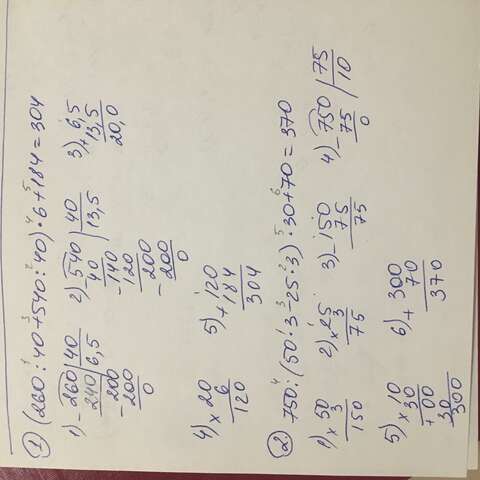 ① (260:40+540:40)·6+184=304
1) -260|40
240 6,5
-200
-200
0
2) 540|40
40 13,5
-140
-120
-200
200
0
3) +6,5
13,5
20,0
4) ×20
6
120
5) +120
184
304
② 750:(50·3-25·3)·30+70=370
1) ×50
3
150
2) ×25
3
75
3) -150
75
75
4) -750|75
75 10
0
5) ×10
30
+00
30
300
6) +300
70
370